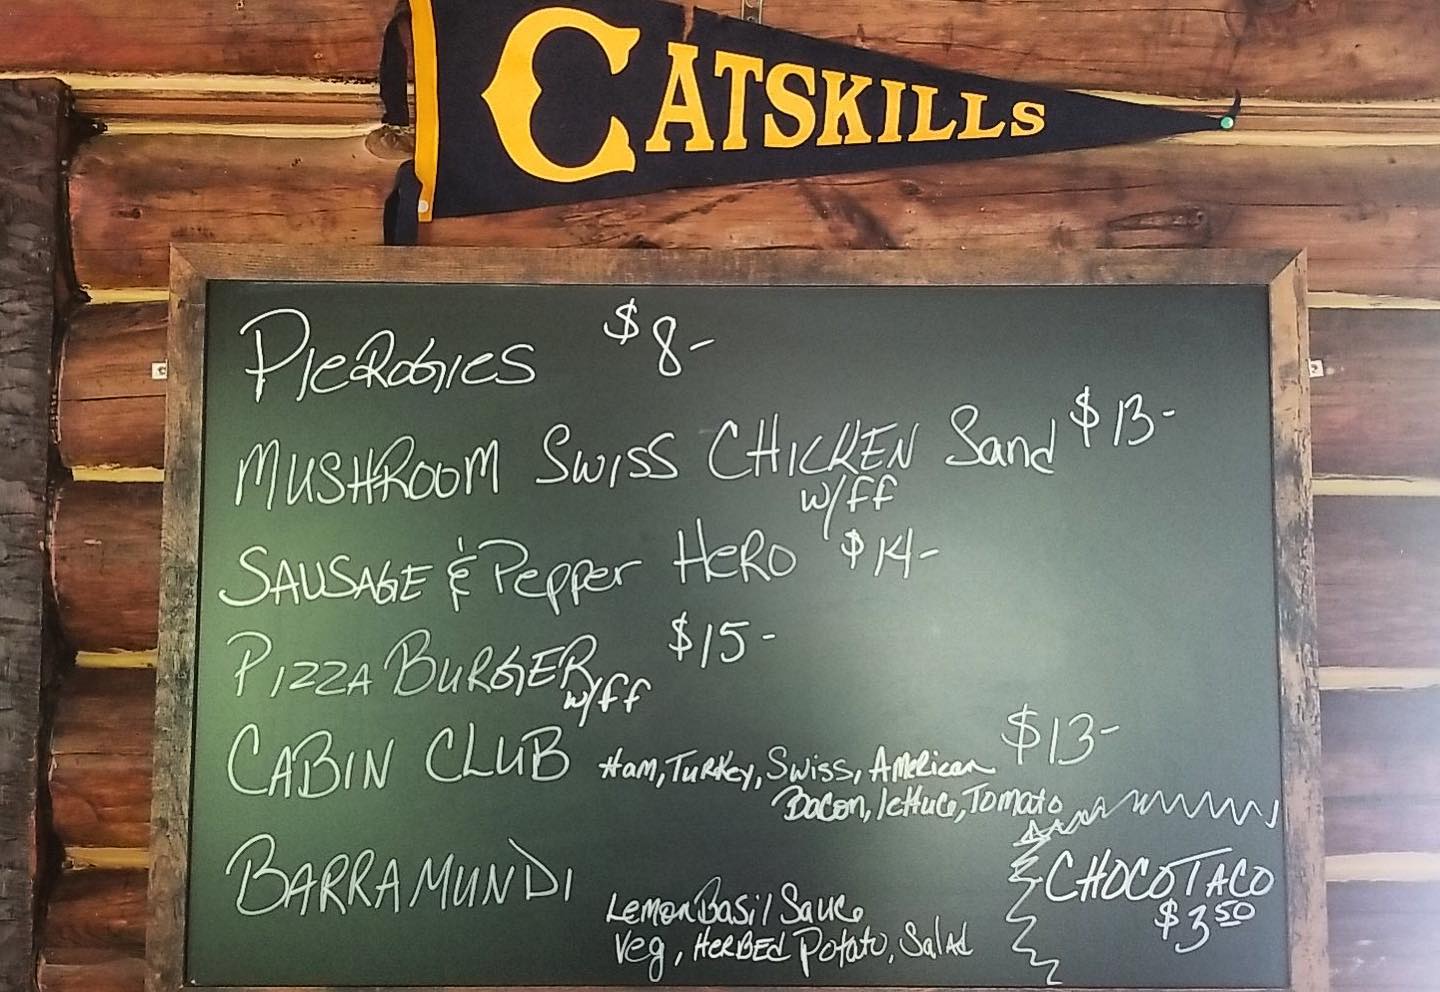 CATSKILLS
PIEROGIES $8-
MUSHROOM SWISS CHICKEN Sand $13-
w/ff
SAUSAGE & Pepper HERO $14-
PIZZA BURGER $15-
w/ff
CABIN CLUB Ham, Turkey, Swiss, American $13-
Bacon, lettuce, Tomato
BARRAMUNDI
Lemon Basil Sauce
Veg, HERBED Potato, Salad
CHOCOTACO
$3 50